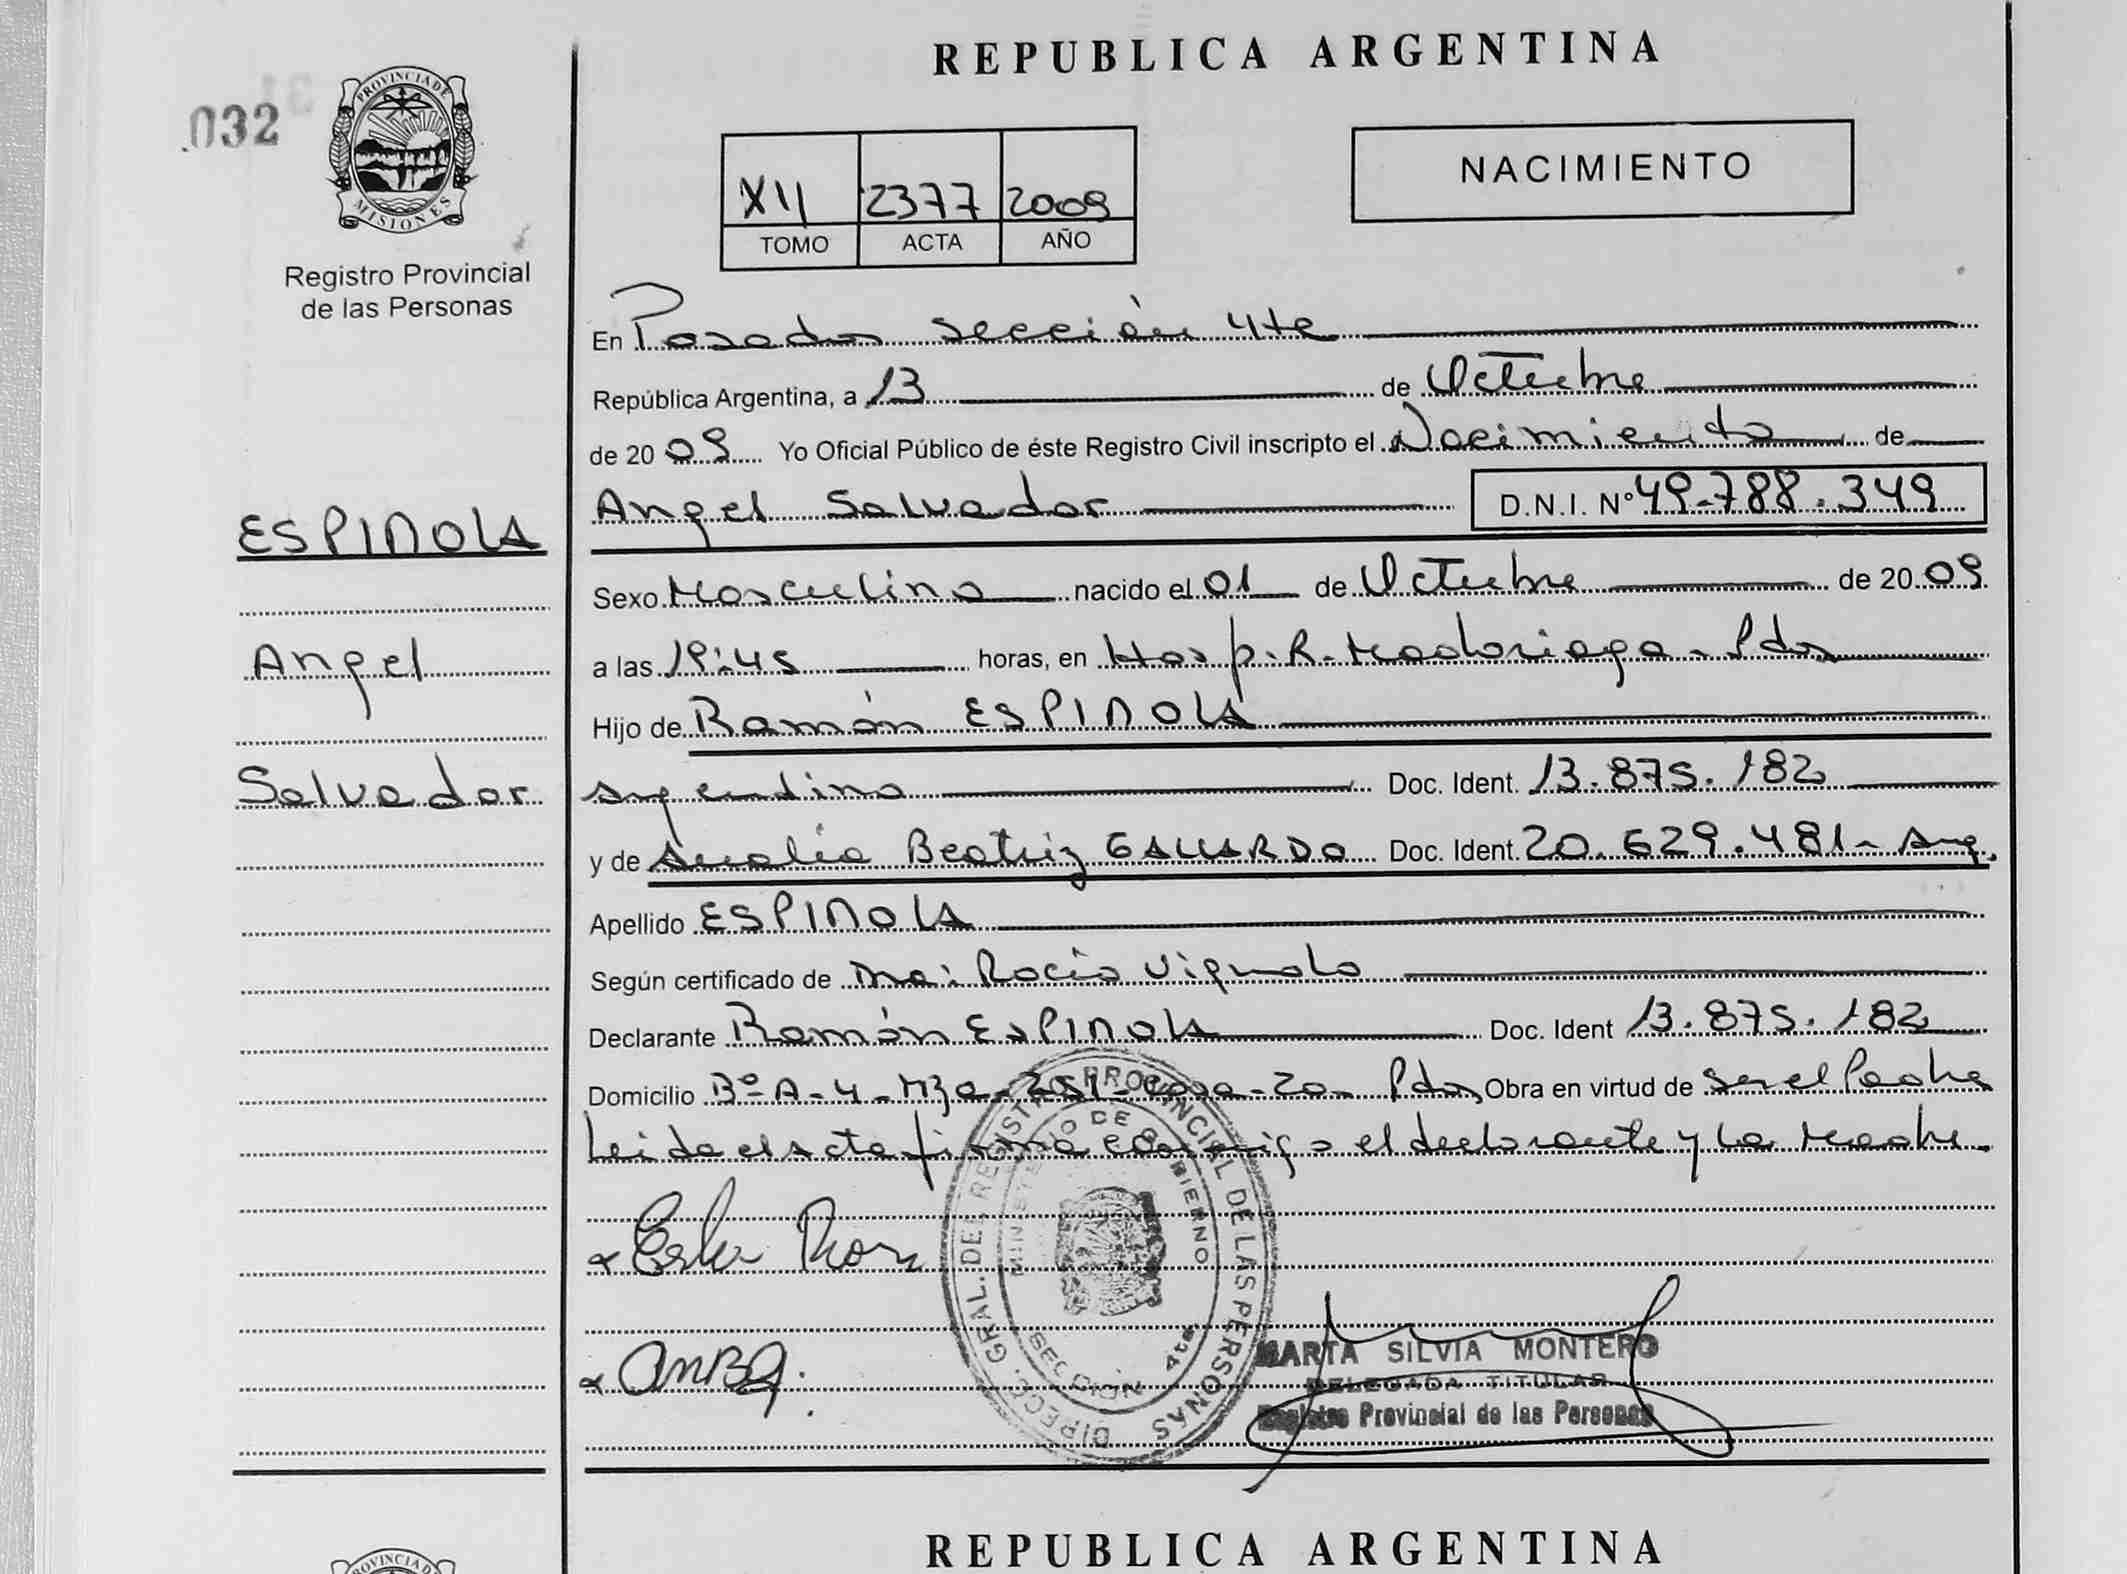 REPUBLICA ARGENTINA
032
PROVINCIA DE
MISIONES
Registro Provincial
de las Personas
XII 2377 2009
TOMO ACTA AÑO
NACIMIENTO
En Posadas sección 4ta
República Argentina, a 13 de Octubre
de 2009 Yo Oficial Público de éste Registro Civil inscripto el Nacimiento de
Angel Salvador D.N.I. N° 49.788.349
ESPINOLA
Angel
Salvador
Sexo Masculino nacido el 01 de Octubre de 2009
a las 19:45 horas, en Hosp. R. Madariaga - Pdas
Hijo de Ramón ESPINOLA
argentino Doc. Ident. 13.875.182
y de Beatriz GALLARDO Doc. Ident. 20.629.481 - Arg.
Apellido ESPINOLA
Según certificado de Dra: Rocío Vignolo
Declarante Ramón ESPINOLA Doc. Ident 13.875.182
Domicilio Bº A-4 - Mza - 251 - casa - 20 - Pdas Obra en virtud de ser el Padre
Leida el acta firma conmigo el declarante y la Madre.
DIRECC. GRAL. DEL REGISTRO PROVINCIAL DE LAS PERSONAS
MINISTERIO DE GOBIERNO
SECCION 4ta.
MARTA SILVIA MONTERO
DELEGADA TITULAR
Registro Provincial de las Personas
REPUBLICA ARGENTINA
PROVINCIA DE